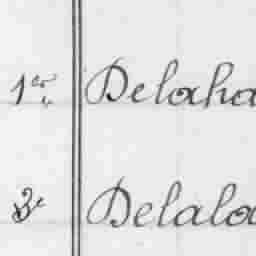 1er Delaha
3e Delala